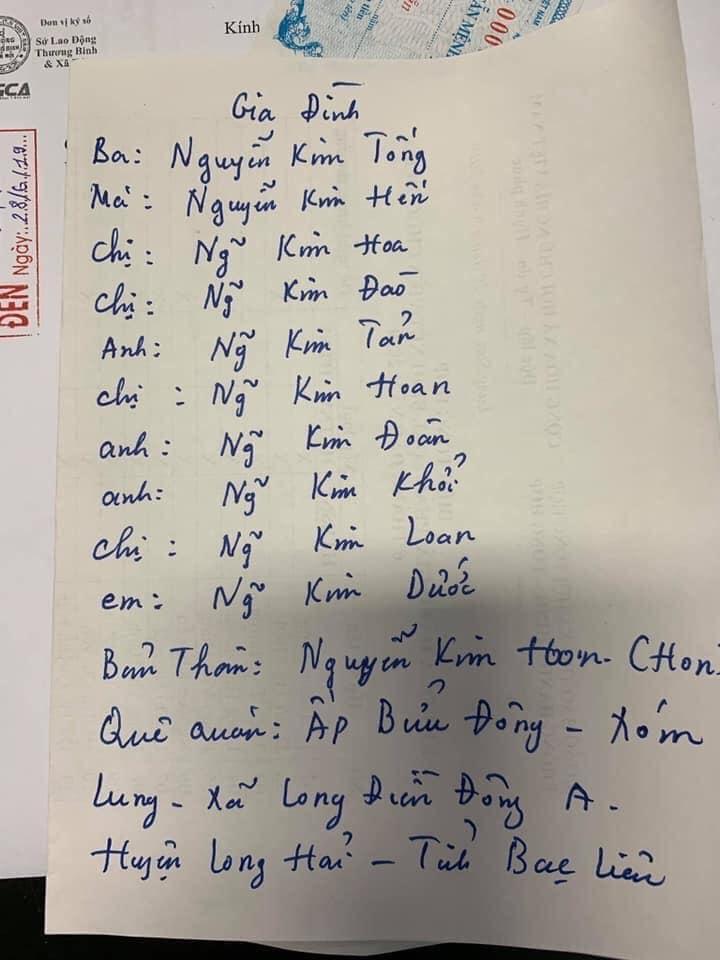 Đơn vị ký số
Sở Lao Động
Thương Binh
& Xã
Kính
000
ĐẾN
Ngày: 28/6/19
Gia Đình
Ba: Nguyễn Kim Tống
Má: Nguyễn Kim Hến
Chị: Ngũ Kim Hoa
Chị: Ngũ Kim Đào
Anh: Ngũ Kim Tản
chị: Ngũ Kim Hoan
anh: Ngũ Kim Đoàn
anh: Ngũ Kim Khởi
chị: Ngũ Kim Loan
em: Ngũ Kim Dước
Bản Thân: Nguyễn Kim Hon- (Hon)
Quê quán: Ấp Bửu Đông - Xóm
Lung - Xã Long Điền Đông A -
Huyện Long Hải - Tỉnh Bạc Liêu